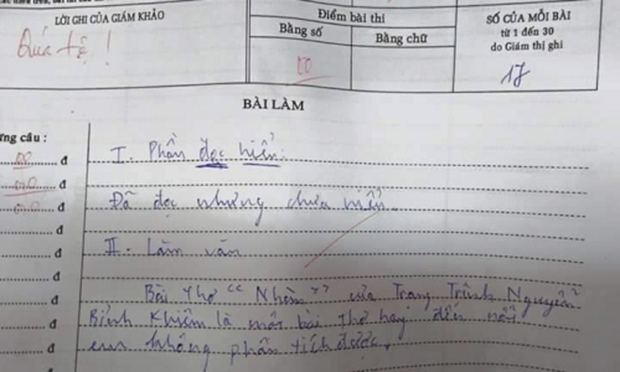 LỜI GHI CỦA GIÁM KHẢO
Quá tệ !
Điểm bài thi
Bằng số
Bằng chữ
00
SỐ CỦA MỖI BÀI
từ 1 đến 30
do Giám thị ghi
17
BÀI LÀM
ừng câu :
00 đ
0,0 đ
0,0 đ
đ
đ
đ
đ
đ
đ
I. Phần đọc hiểu:
Đã đọc nhưng chưa hiểu.
II. Làm văn
Bài thơ "Nhàn" của Trạng Trình Nguyễn
Bỉnh Khiêm là một bài thơ hay đến nỗi
em không phân tích được.